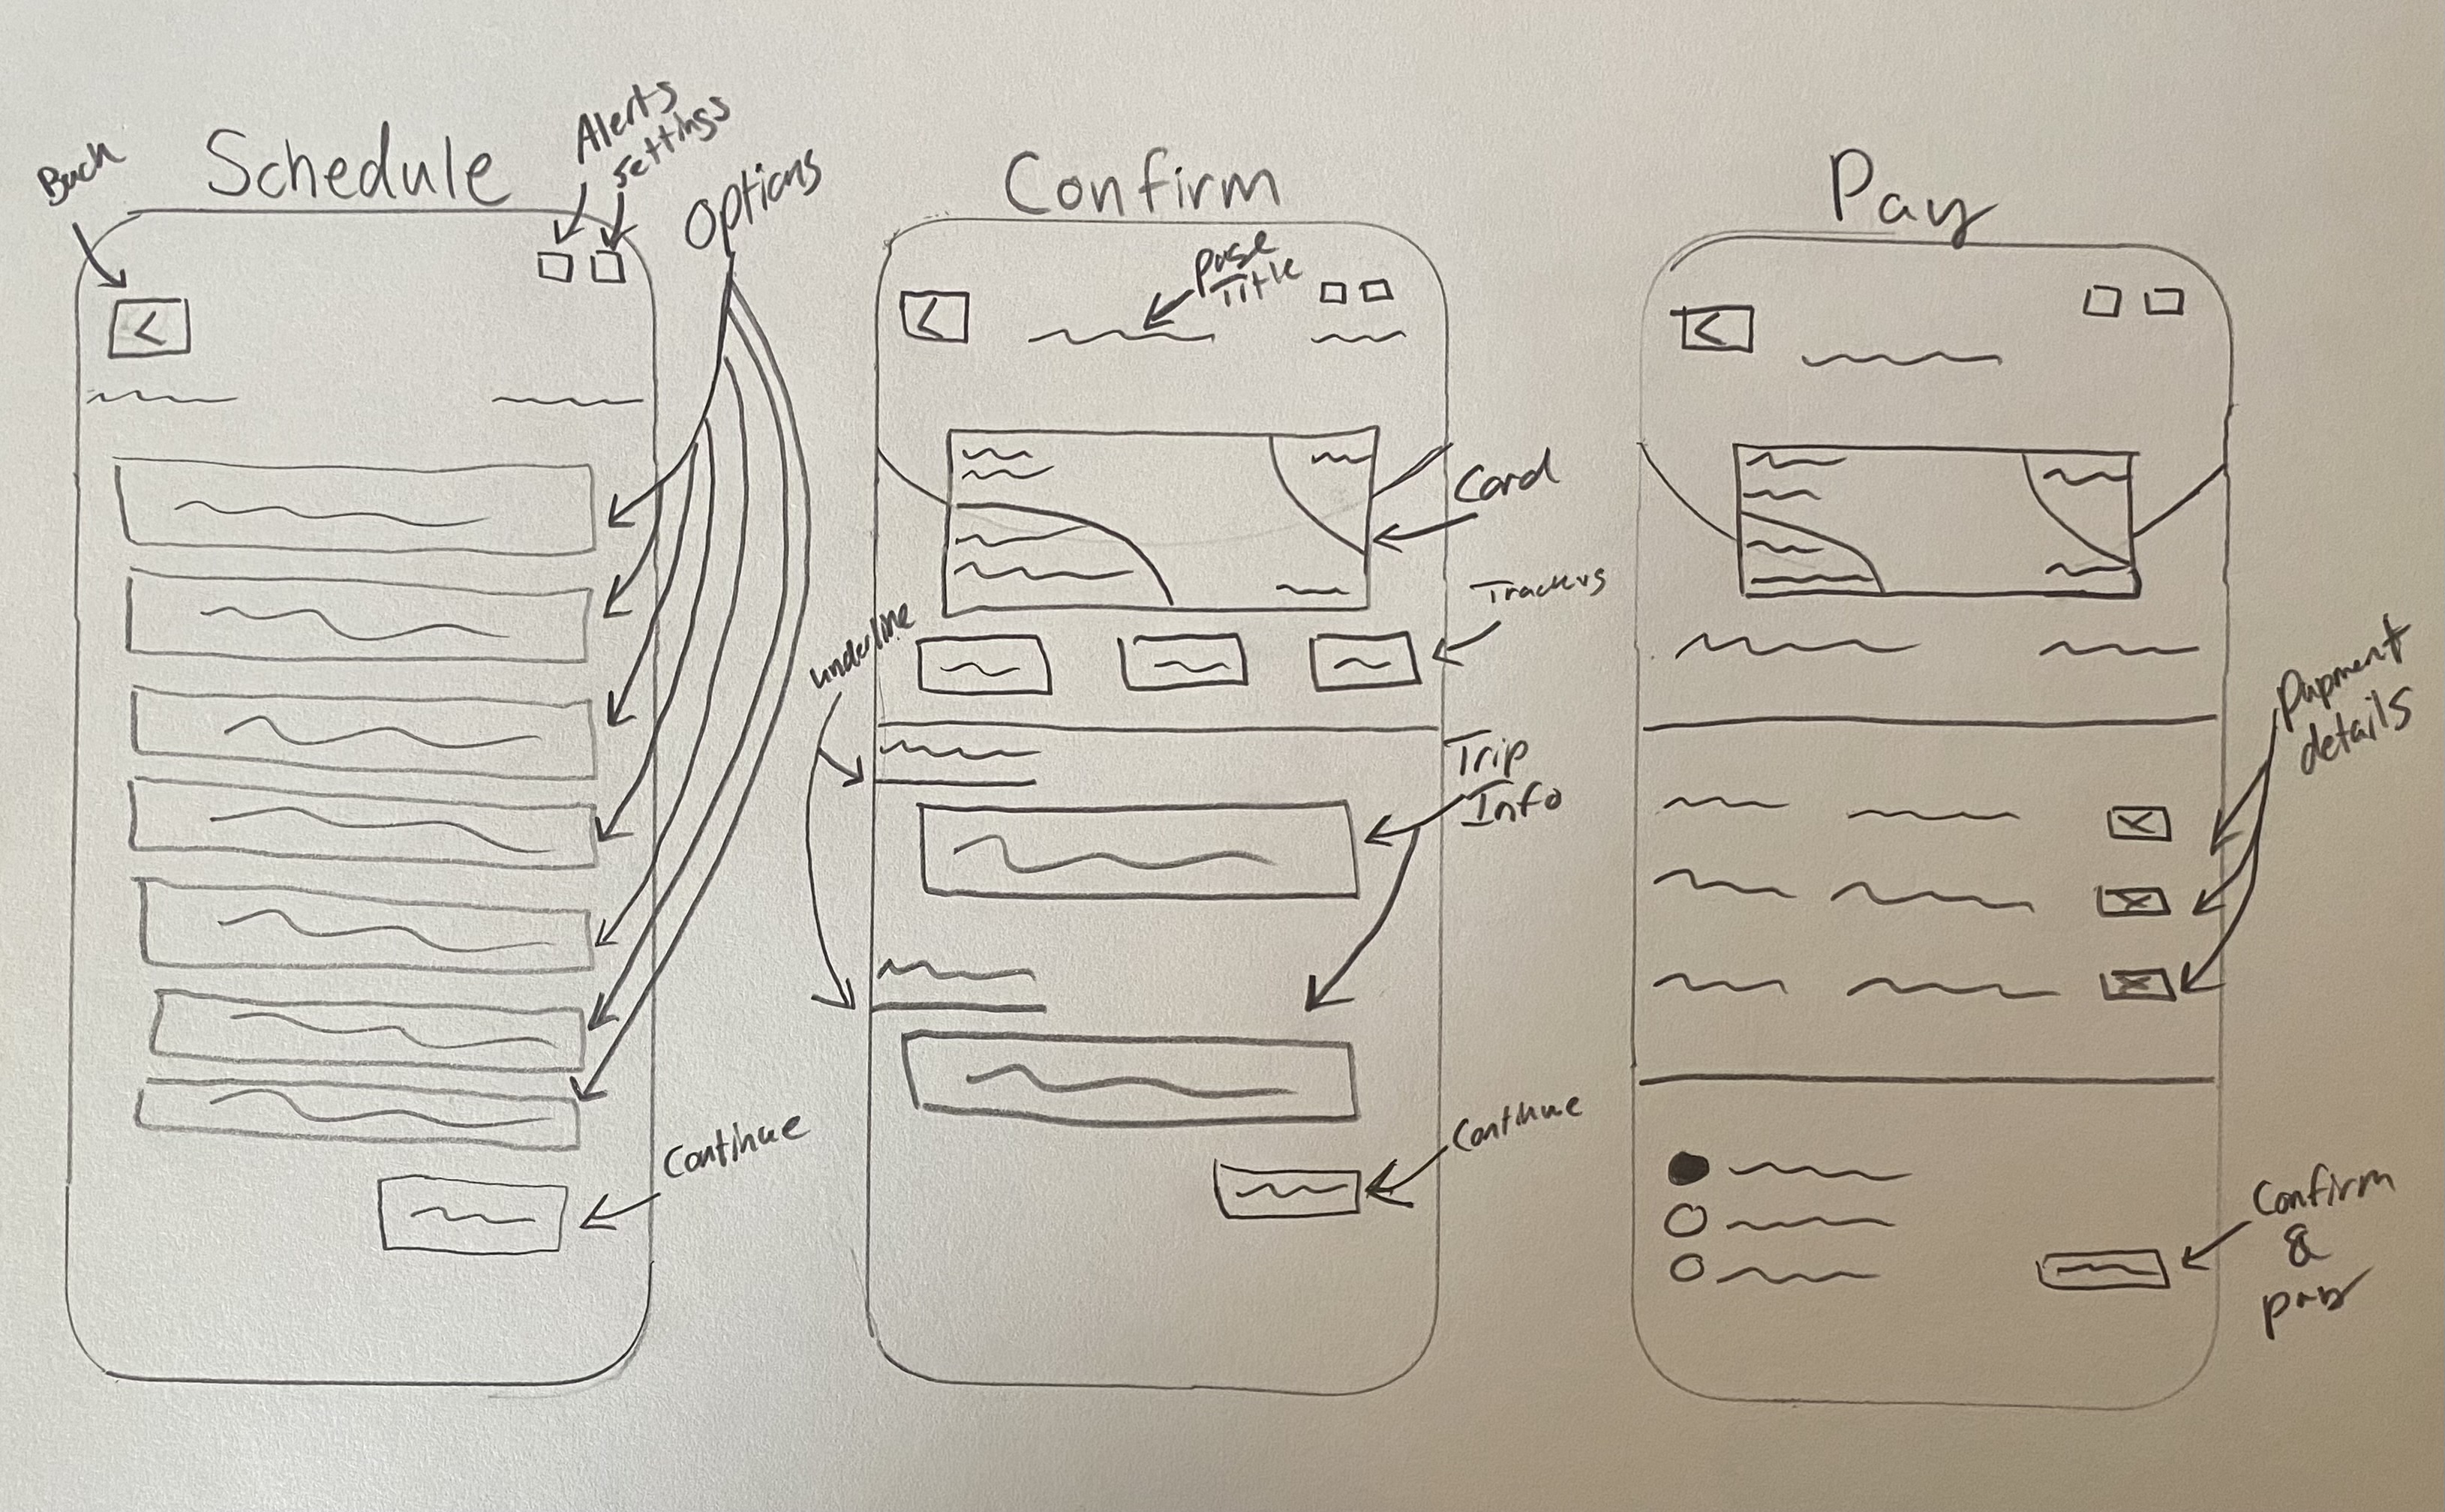 Back
Schedule
Alerts
settings
Options
Continue
Confirm
Page
Title
Card
Trackers
underline
Trip
Info
Continue
Pay
Payment
details
Confirm
&
pay